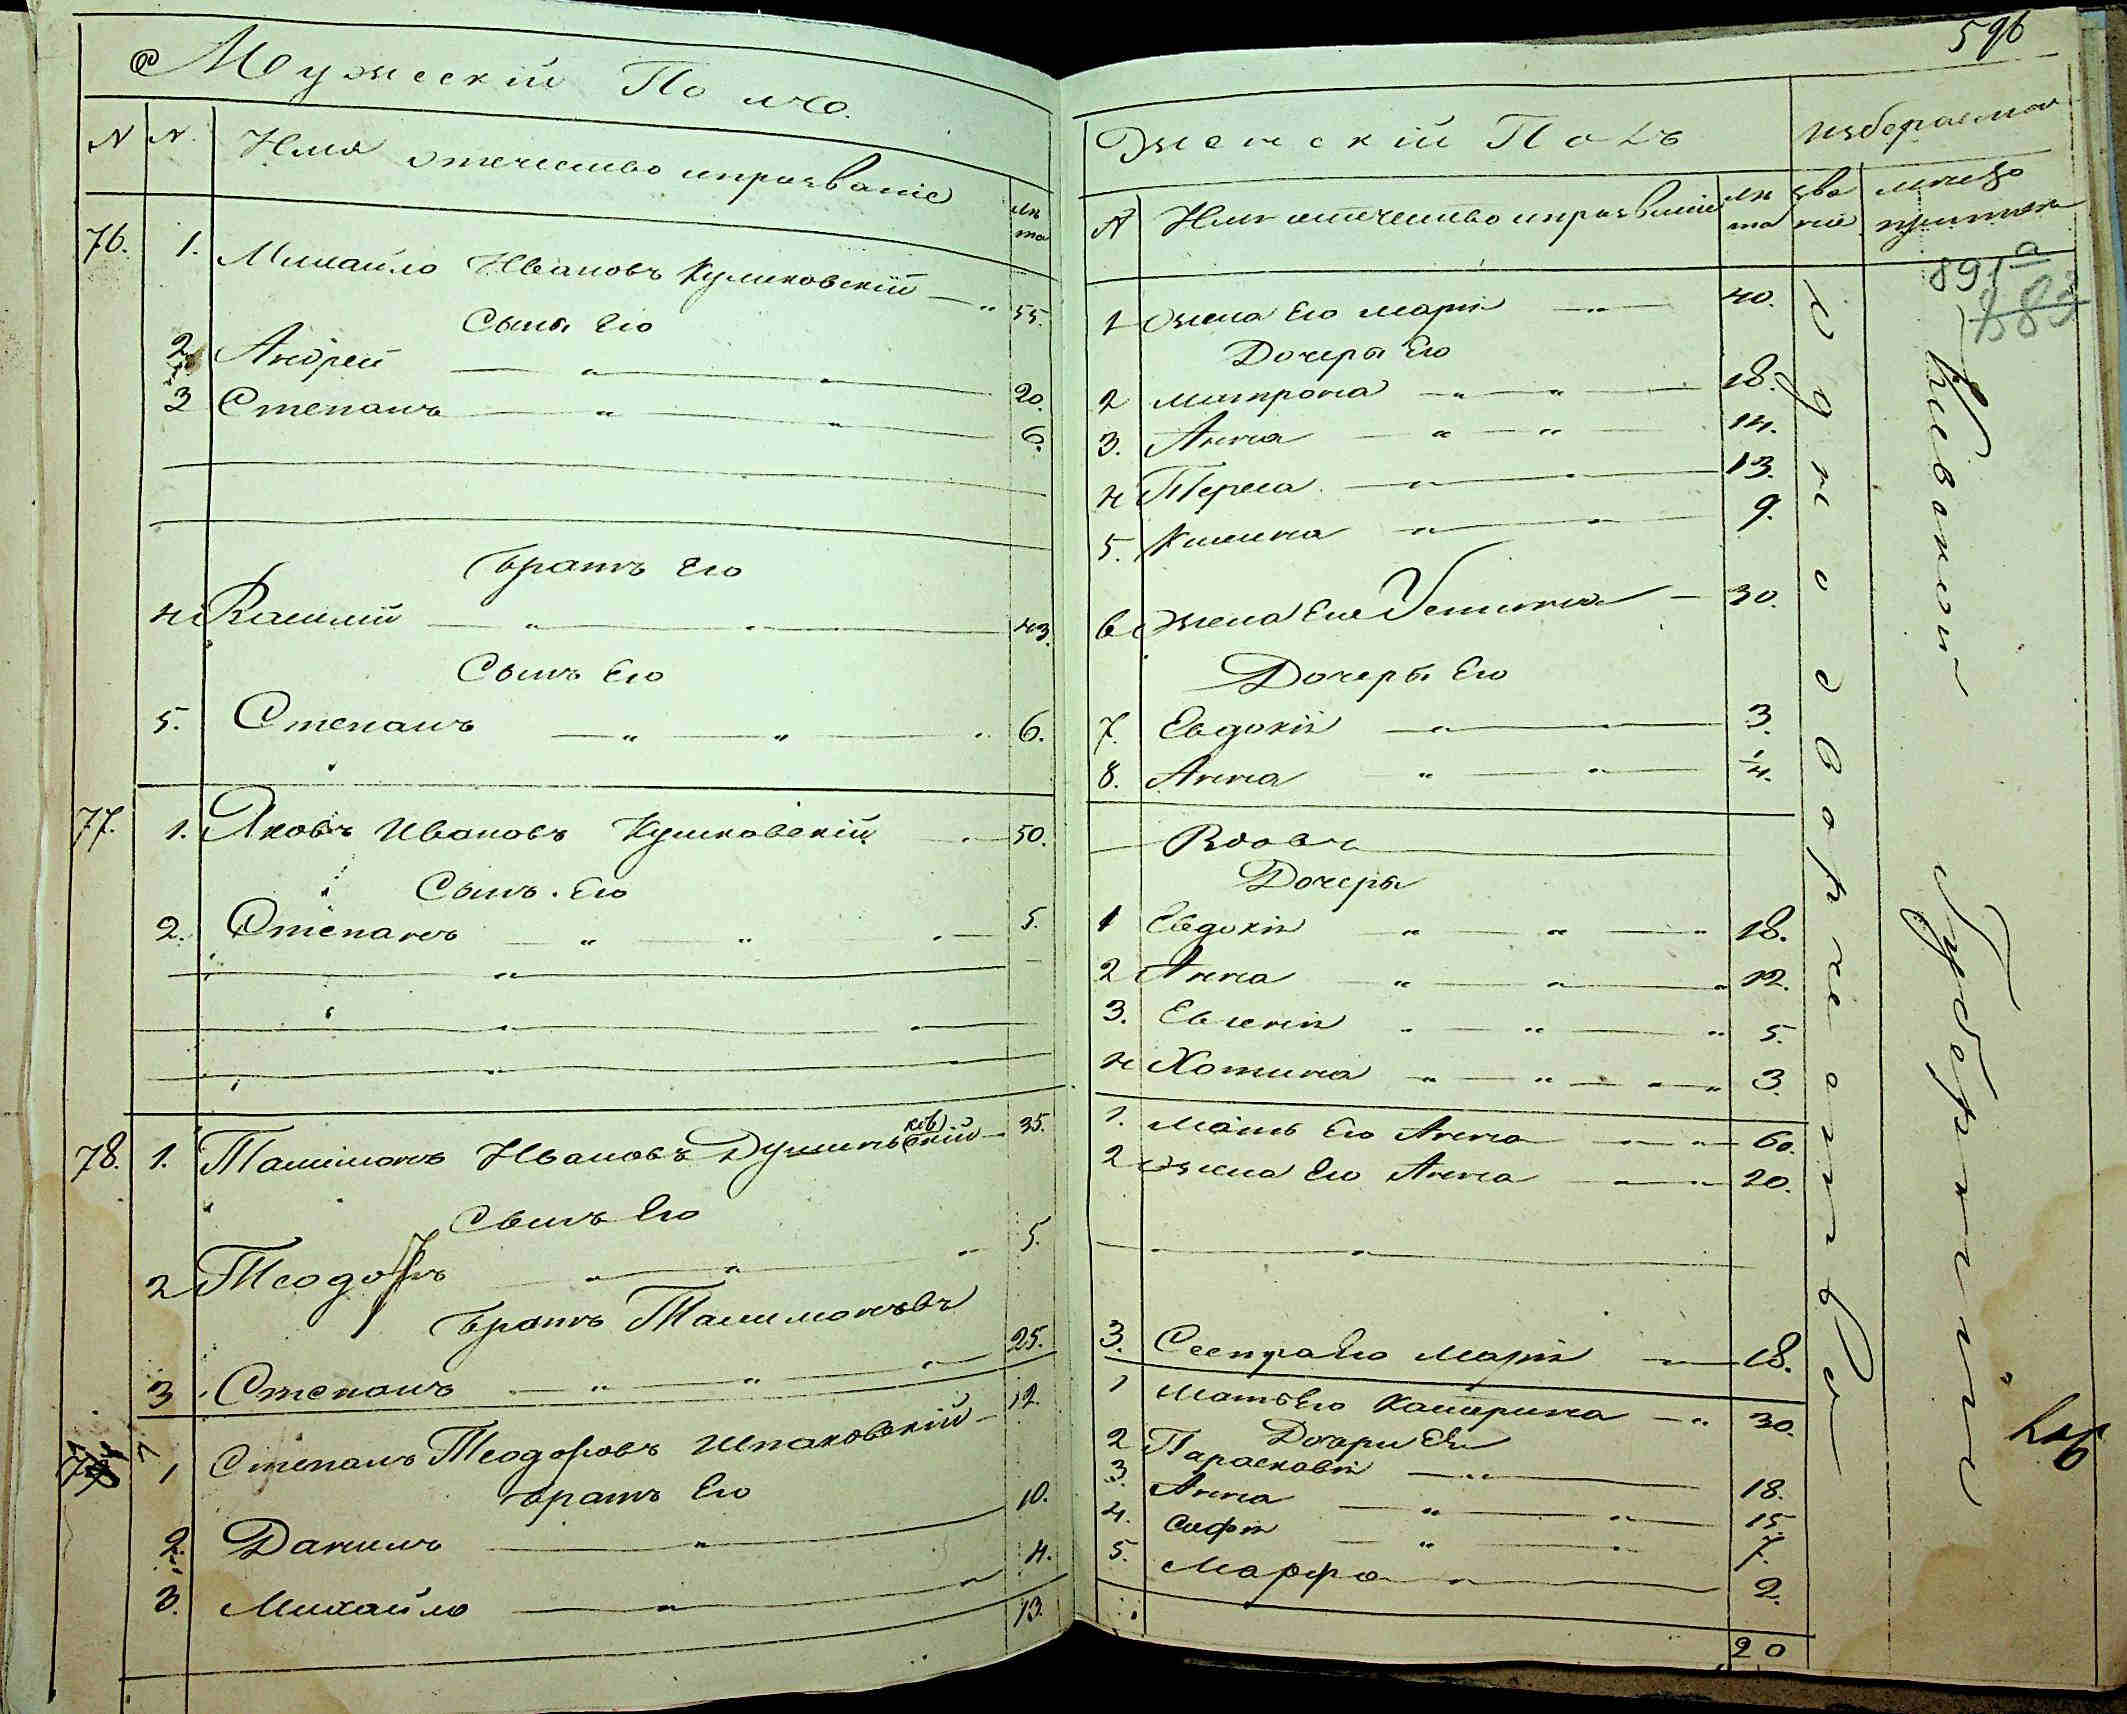 Мужескій Полъ.
N N. Имя отечество и прозваніе лѣта
76. 1. Михайло Ивановъ Куликовскій — " 55.
Сыны Его
2 Андрей — " — " — 20.
3 Степанъ — " — " — 6.
Братъ Его
4 Василій — " — " — 43.
Сынъ Его
5. Степанъ — " — " — " 6.
77. 1. Яковъ Ивановъ Куликовскій — 50.
Сынъ Его
2. Степанъ — " — " — " 5.
78. 1. Ивановъ 35.
Сынъ Его
2 Теодоръ — " — " — " 5.
Братъ
3 Степанъ — " — " — " 25.
1 Степанъ Теодоровъ Шпаковскій — 12.
Братъ Его
2. Данилъ — " — 10.
3. Михайло — " — " 4.
13.
596
Женскій Полъ
N Имя отечество и прозваніе лѣта званіе
891а
883
1 Жена Его Марія — " — 40.
Дочеры Его
2 Митрона — " — " — 18.
3. Анна — " — " — 14.
4 Тереса — " — " — 13.
5. — " — " 9.
6 Жена Его Устинія — 30.
Дочеры Его
7. Евдокія — " — " — 3.
8. Анна — " — " — 1/4.
Вдовъ
Дочеры
1 Евдокія — " — " — " 18.
2 Анна — " — " — " 12.
3. Евгенія — " — " — " 5.
4 Хотина — " — " — " 3.
1. Мать Его Анна — " — " — 60.
2 Жена Его Анна — " — " — 20.
3. Сестра Его Марія — " — 18.
1 Мать Его Катерина — " 30.
Дочери Ея
2 Парасковія — " — 18.
3. Анна — " — " — 15.
4. Софія — " — " 7.
5. Марфа — " — 2.
20
Однодворческая
Кіевской Губерніи